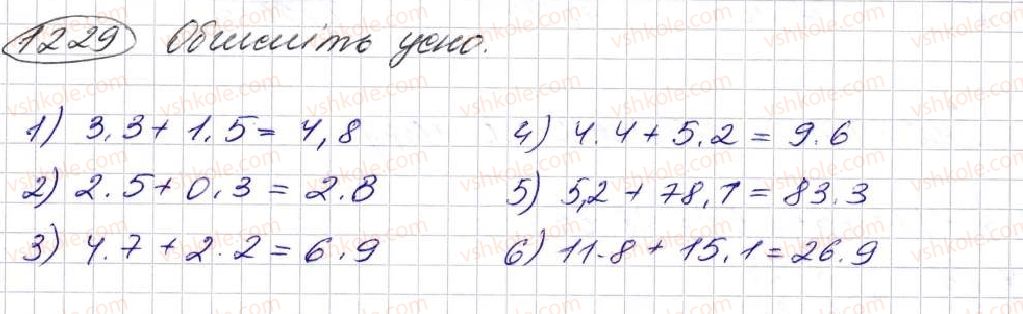 1229 Обчисліть усно.
1) 3.3 + 1.5 = 4,8
2) 2.5 + 0.3 = 2.8
3) 4.7 + 2.2 = 6.9
4) 4.4 + 5.2 = 9.6
5) 5,2 + 78,1 = 83.3
6) 11.8 + 15.1 = 26.9
vshkole.com